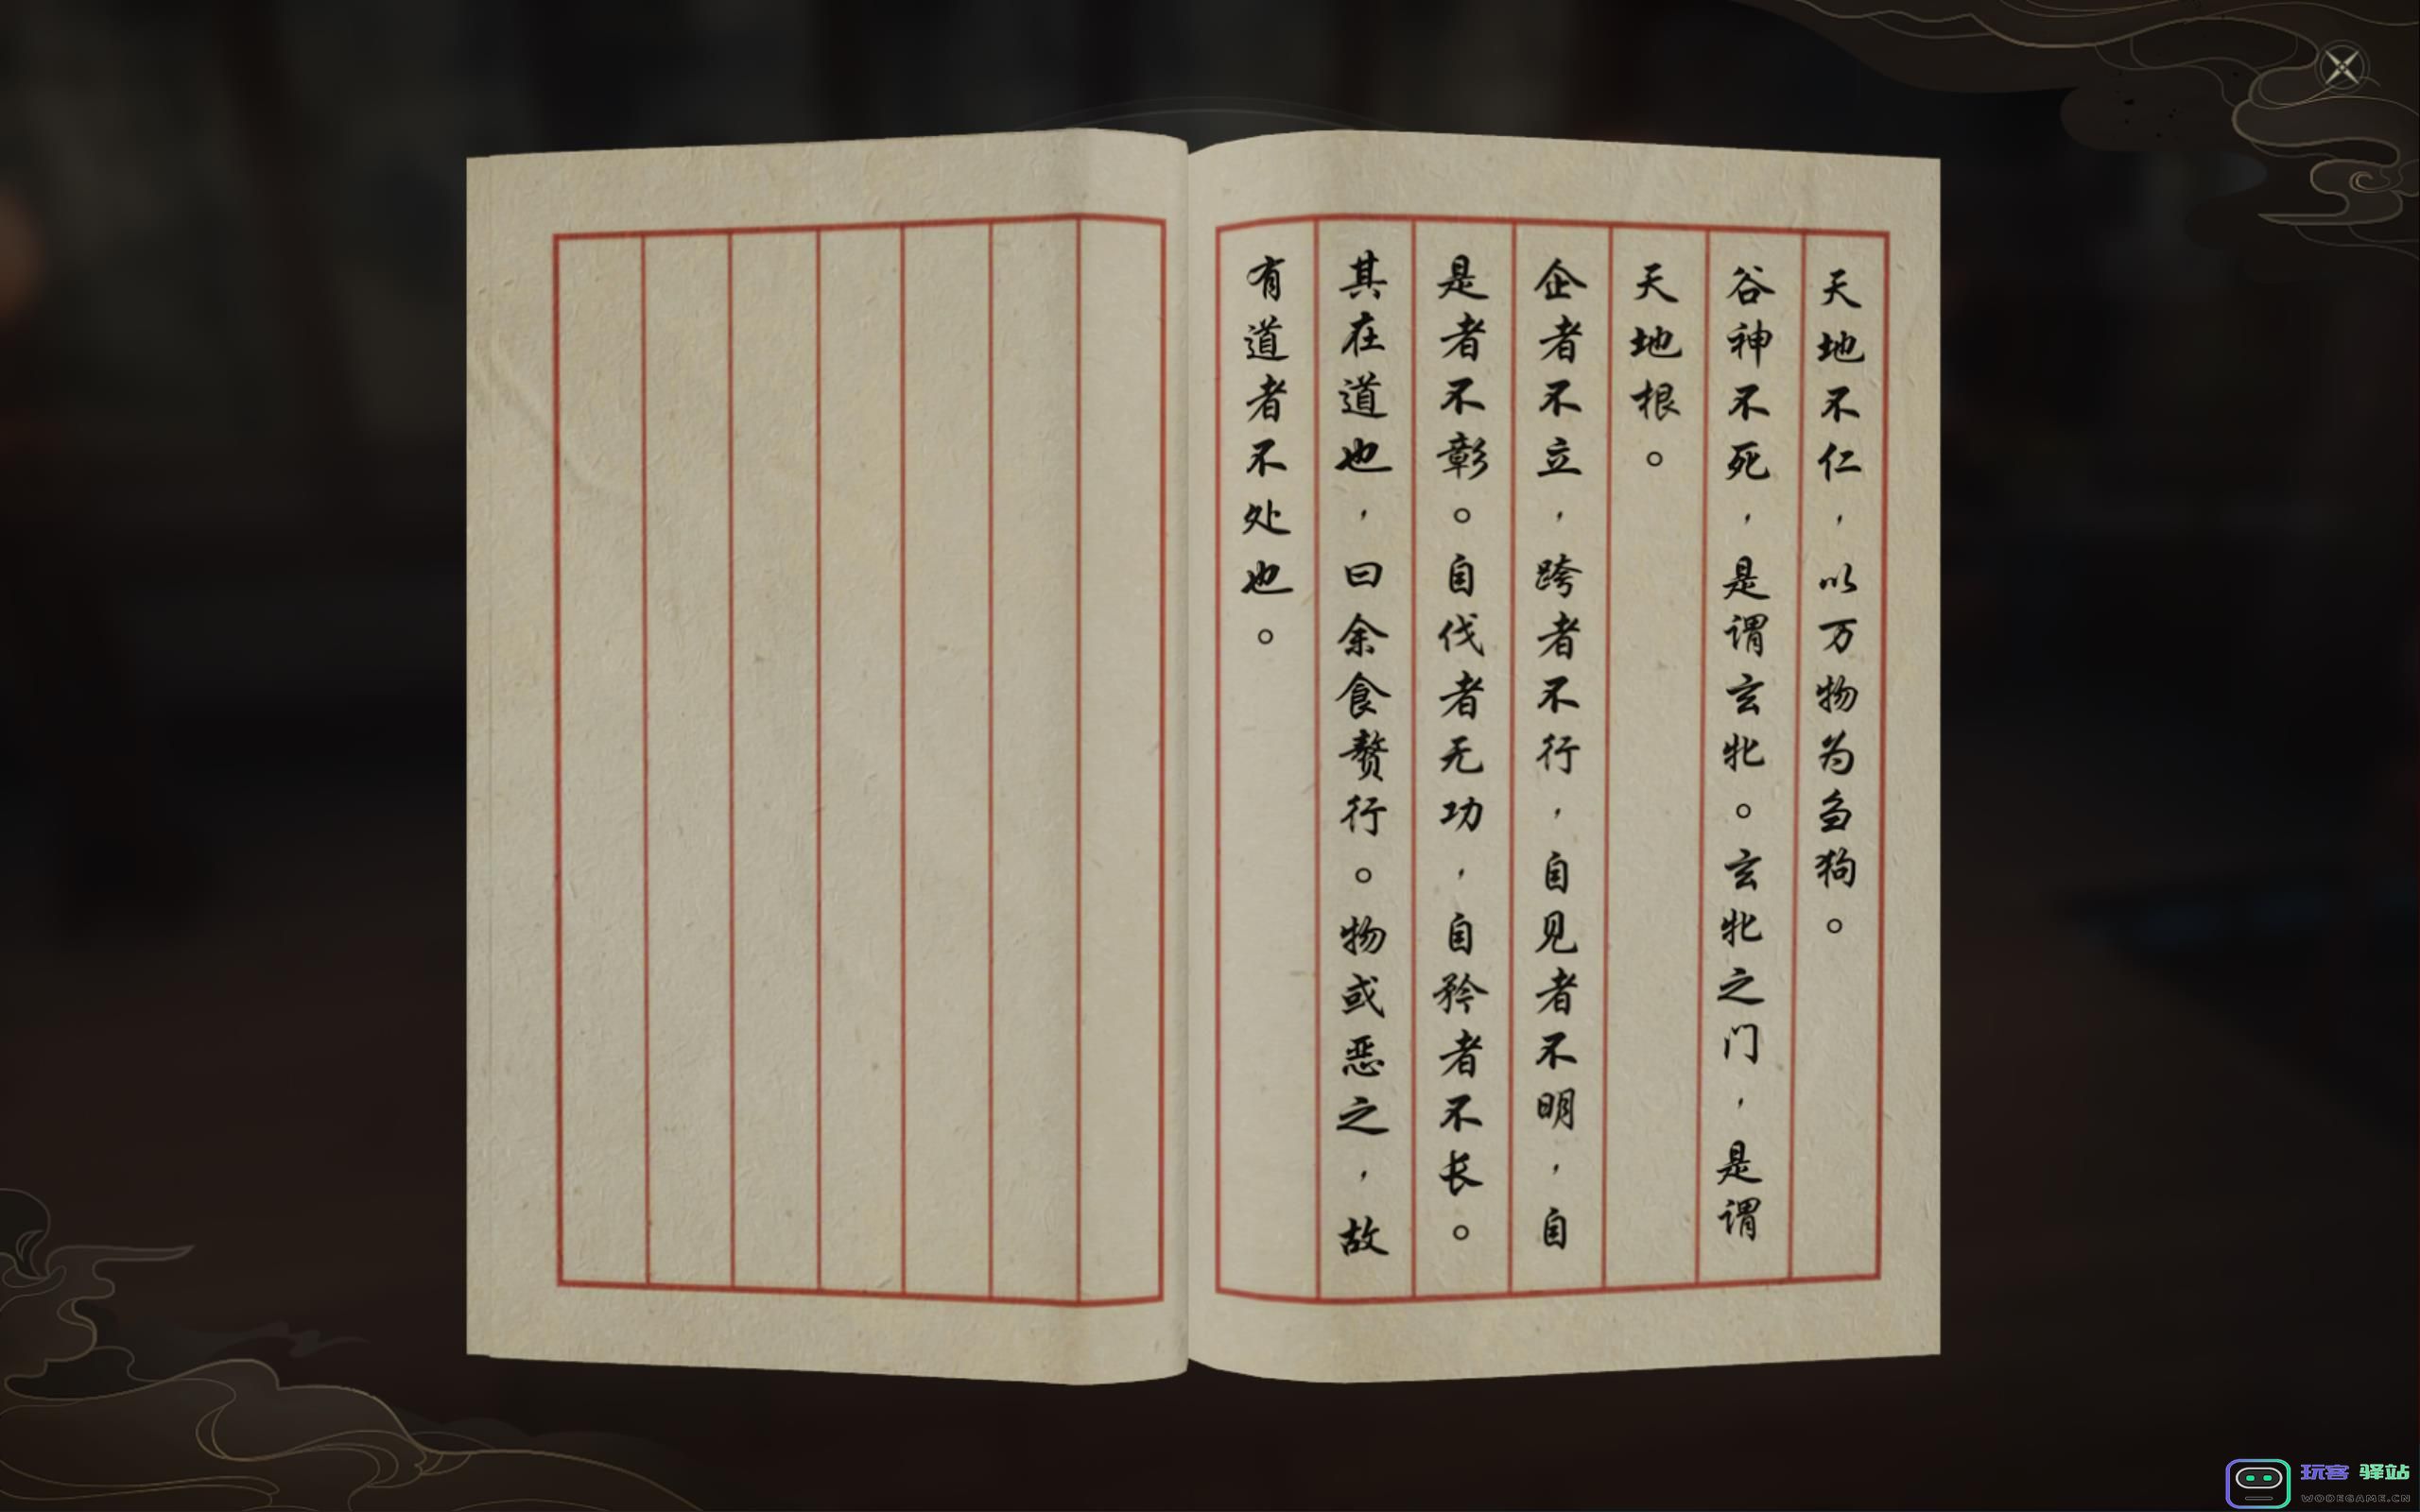 天地不仁，以万物为刍狗。
谷神不死，是谓玄牝。玄牝之门，是谓
天地根。
企者不立，跨者不行，自见者不明，自
是者不彰。自伐者无功，自矜者不长。
其在道也，曰余食赘行。物或恶之，故
有道者不处也。
玩客 驿站
WOOEGAME.CN